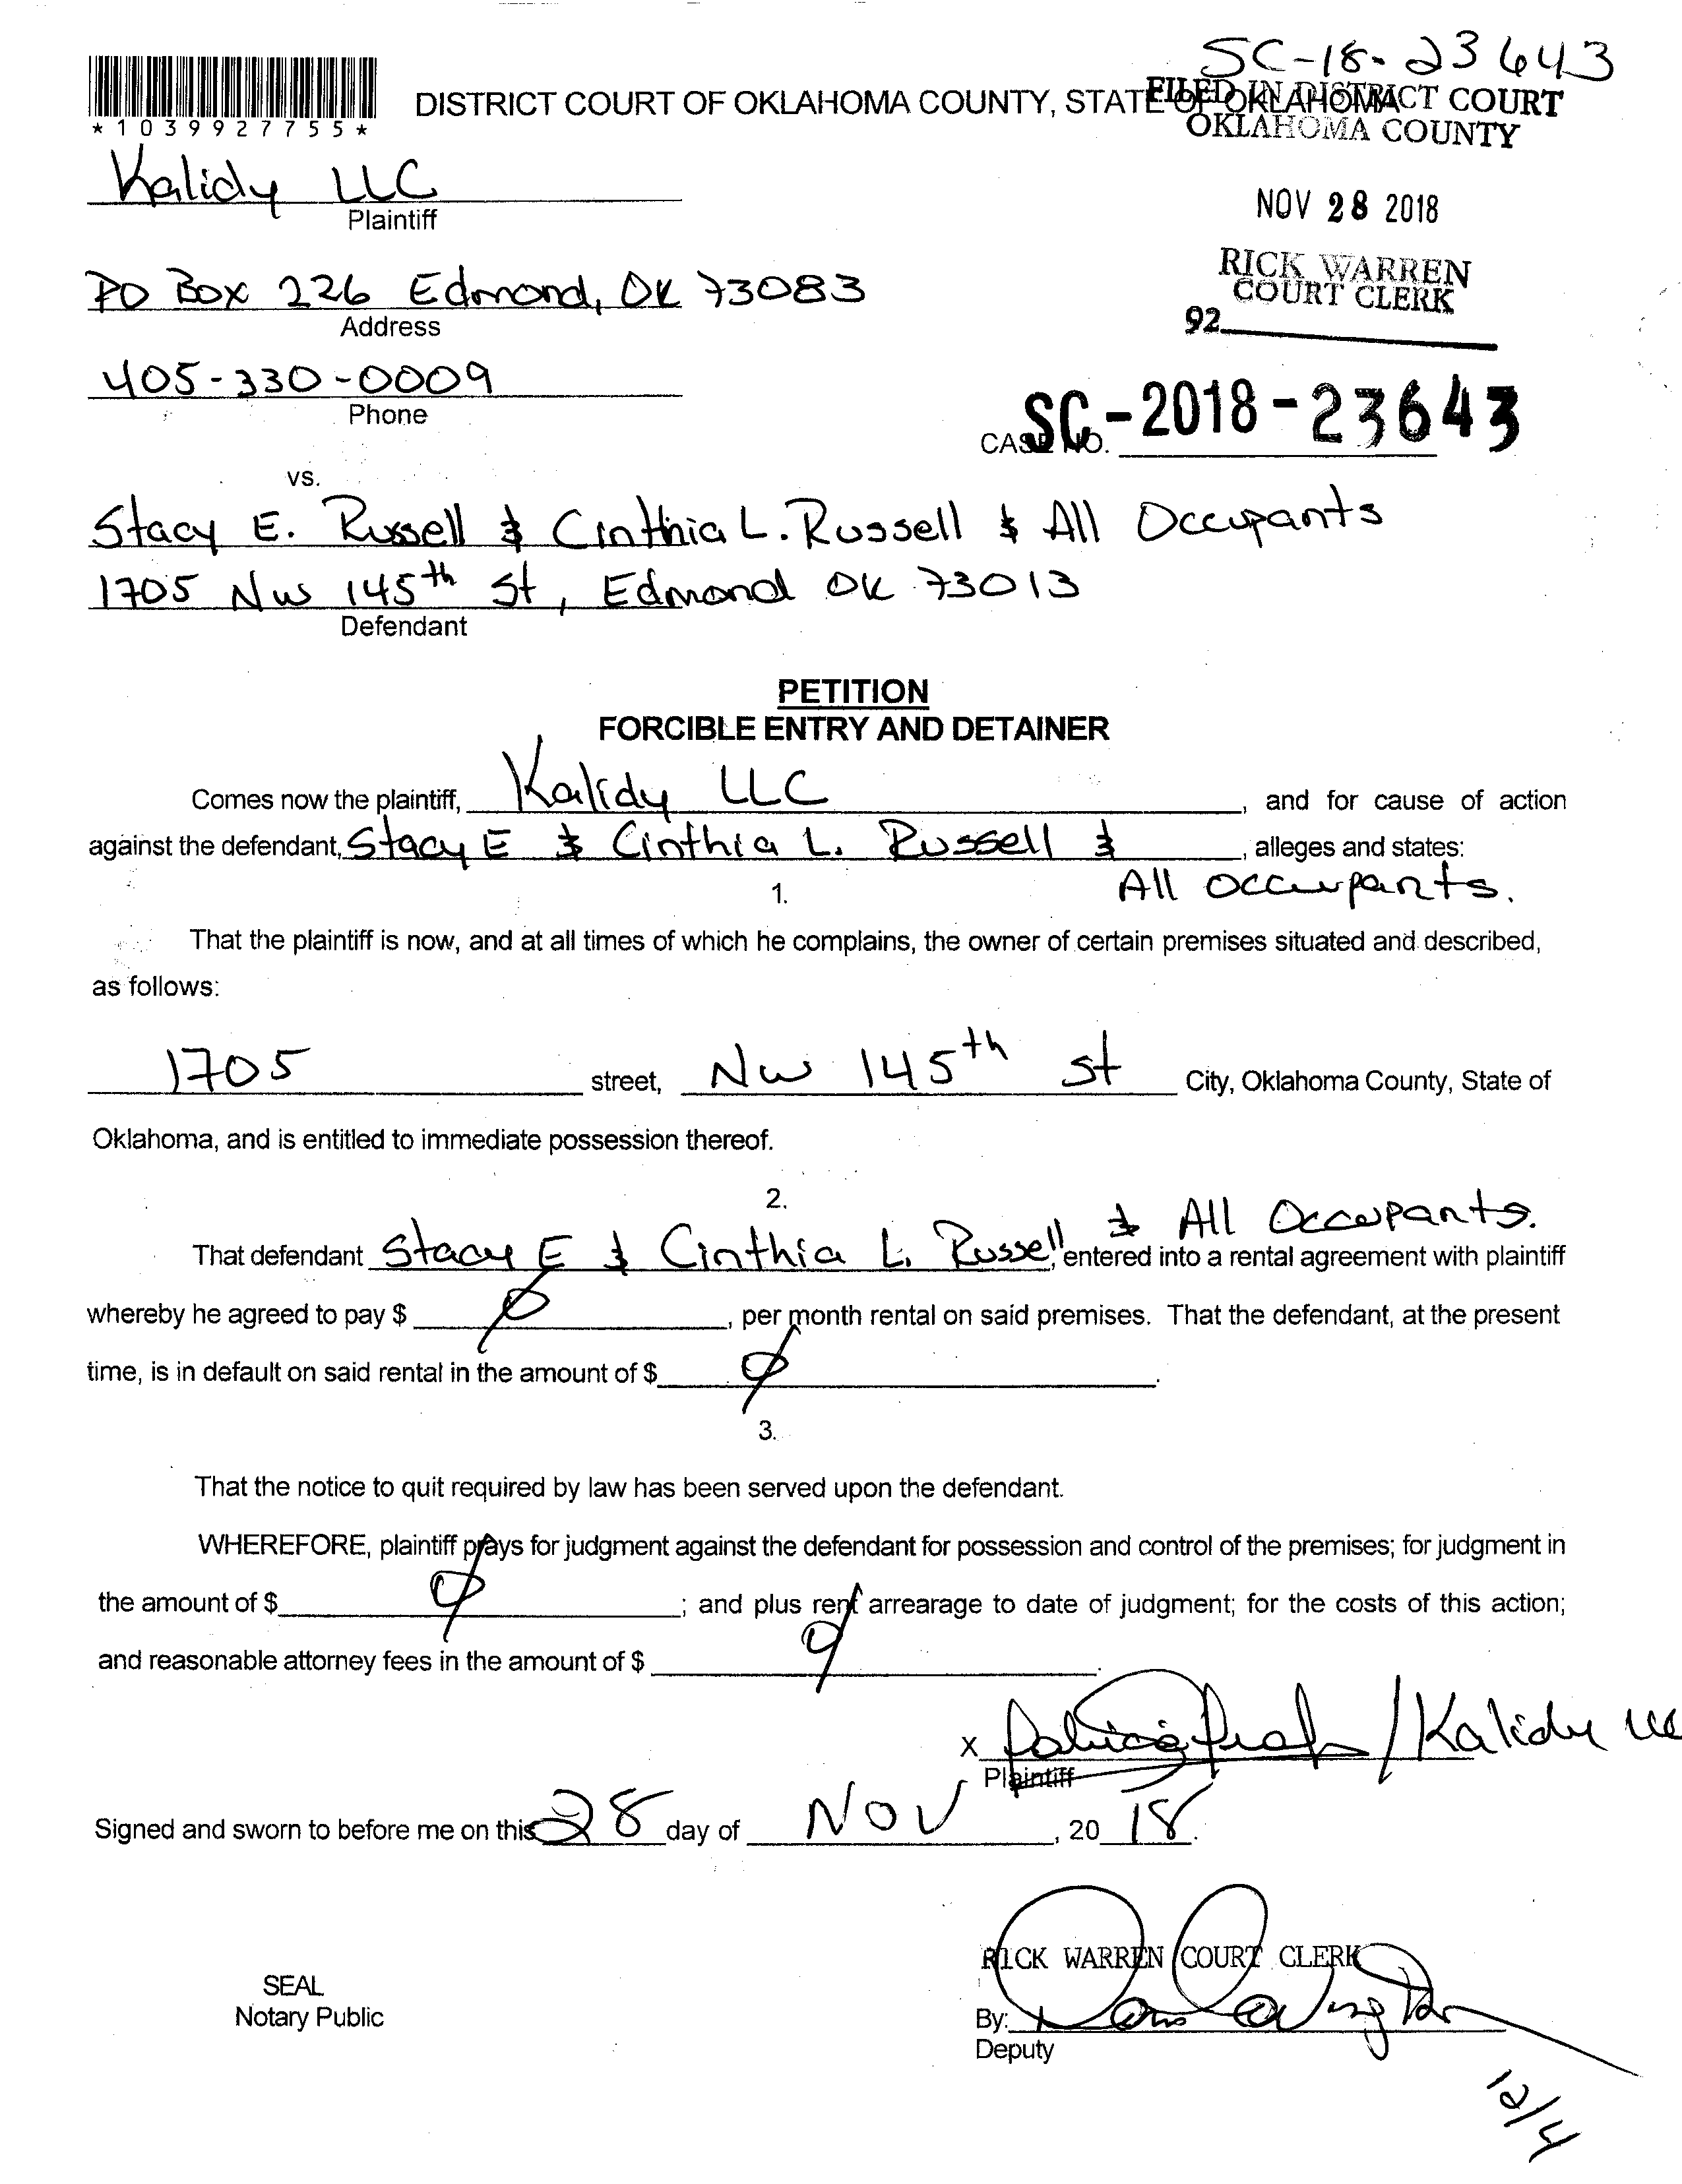 SC-18-23643
*1039927755*
DISTRICT COURT OF OKLAHOMA COUNTY, STATE OF OKLAHOMA
FILED IN DISTRICT COURT
OKLAHOMA COUNTY
Kalidy LLC
Plaintiff
NOV 28 2018
PO Box 226 Edmond, OK 73083
Address
RICK WARREN
COURT CLERK
92
405-330-0009
Phone
CASE NO. SC-2018-23643
vs.
Stacy E. Russell & Cinthia L. Russell & All Occupants
1705 NW 145th St, Edmond OK 73013
Defendant
PETITION
FORCIBLE ENTRY AND DETAINER
Comes now the plaintiff, Kalidy LLC, and for cause of action
against the defendant, Stacy E & Cinthia L. Russell &, alleges and states:
All Occupants.
1.
That the plaintiff is now, and at all times of which he complains, the owner of certain premises situated and described,
as follows:
1705 street, NW 145th St City, Oklahoma County, State of
Oklahoma, and is entitled to immediate possession thereof.
2.
That defendant Stacy E & Cinthia L. Russell & All Occupants. entered into a rental agreement with plaintiff
whereby he agreed to pay $ 0, per month rental on said premises. That the defendant, at the present
time, is in default on said rental in the amount of $ 0.
3.
That the notice to quit required by law has been served upon the defendant.
WHEREFORE, plaintiff prays for judgment against the defendant for possession and control of the premises; for judgment in
the amount of $ 0; and plus rent arrearage to date of judgment; for the costs of this action;
and reasonable attorney fees in the amount of $ 0.
X /Kalidy LLC
Plaintiff
Signed and sworn to before me on this 28 day of NOV, 2018.
RICK WARREN COURT CLERK
SEAL
Notary Public
By:
Deputy
12/4